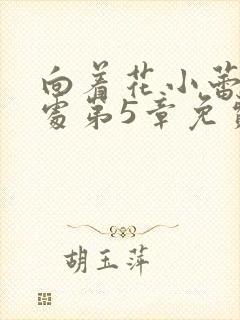 向着花小蕾
处第5章免
胡玉萍